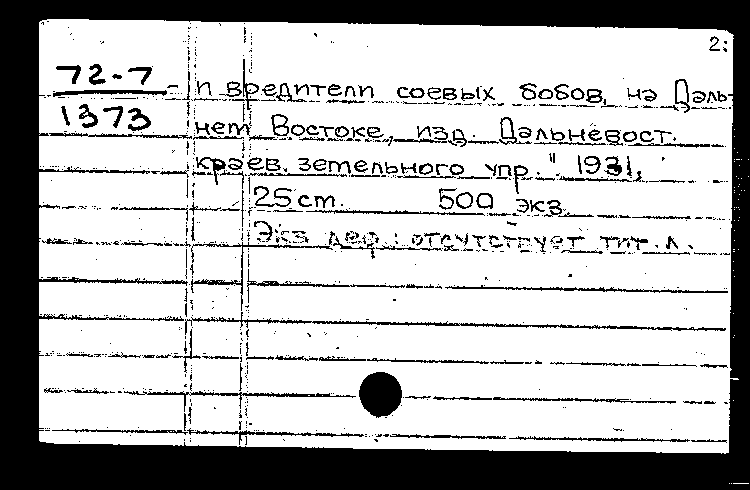 2:
72-7 - и вредители соевых бобов, на Даль-
1373 нем Востоке, изд. Дальневост.
краев. земельного упр." 1931,
25 ст. 500 экз.
Экз деф.: отсутствует тит. л.